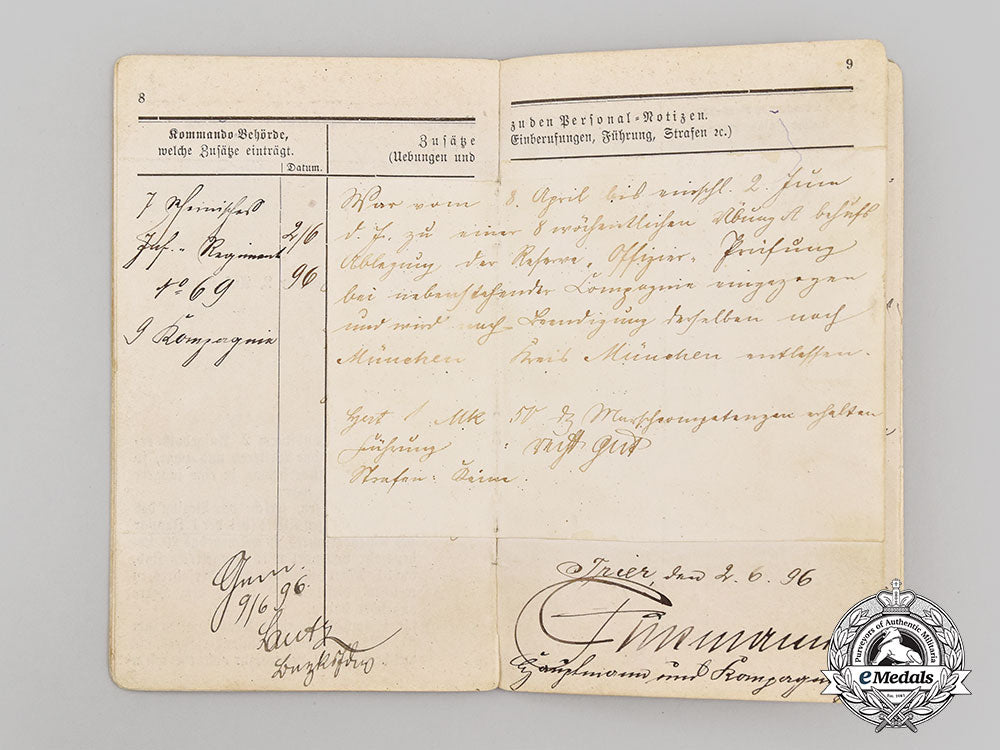 8
Kommando-Behörde,
welche Zusätze einträgt.
Datum.
Zusätze
(Uebungen und
7 Rheinisches
Inf.- Regiment
No 69
9 Kompagnie
2/6
96
Gem.
9/6 96.
9
zu den Personal-Notizen.
Einberufungen, Führung, Strafen ꝛc.)
War vom 8. April bis einschl. 2. Juni
d. J. zu einer 8 wöchentlichen Übung behufs
Ablegung der Reserve-Offizier-Prüfung
bei nebenstehender Compagnie eingezogen
und wird nach Beendigung derselben nach
München Kreis München entlassen.
Hat 1 Mk 50 Marschcompetenzen erhalten
Führung : recht gut
Strafen: Keine.
Trier, den 2. 6. 96
Hauptmann und Kompagnie
Purveyors of Authentic Militaria
eMedals